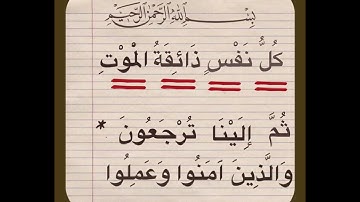 بِسْمِ اللَّهِ الرَّحْمَٰنِ الرَّحِيمِ
كُلُّ نَفْسٍ ذَائِقَةُ الْمَوْتِ
ثُمَّ إِلَيْنَا تُرْجَعُونَ *
وَالَّذِينَ آمَنُوا وَعَمِلُوا